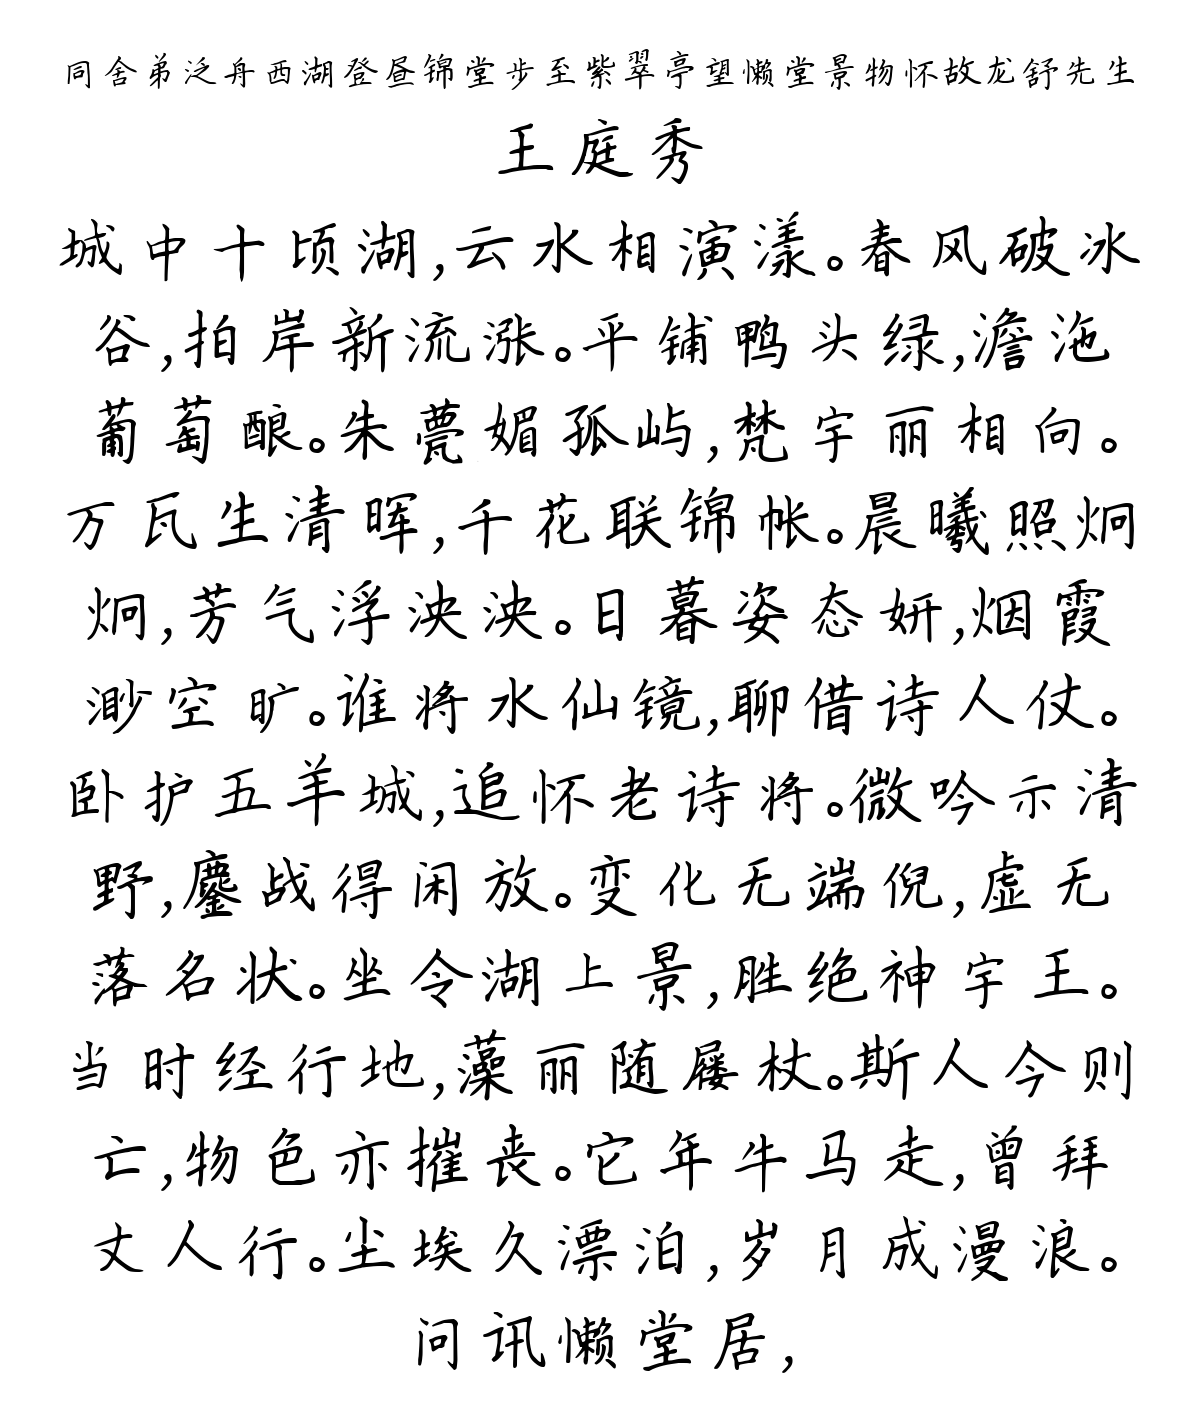 同舍弟泛舟西湖登昼锦堂步至紫翠亭望懒堂景物怀故龙舒先生
王庭秀
城中十顷湖,云水相演漾。春风破冰
谷,拍岸新流涨。平铺鸭头绿,澹沲
葡萄酿。朱甍媚孤屿,梵宇丽相向。
万瓦生清晖,千花联锦帐。晨曦照炯
炯,芳气浮泱泱。日暮姿态妍,烟霞
渺空旷。谁将水仙镜,聊借诗人仗。
卧护五羊城,追怀老诗将。微吟示清
野,鏖战得闲放。变化无端倪,虚无
落名状。坐令湖上景,胜绝神宇王。
当时经行地,藻丽随屦杖。斯人今则
亡,物色亦摧丧。它年牛马走,曾拜
丈人行。尘埃久漂泊,岁月成漫浪。
问讯懒堂居,